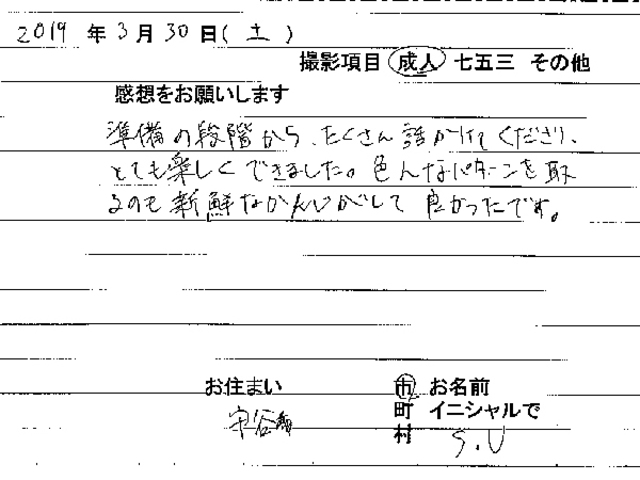 2019 年 3 月 30 日( 土 )
撮影項目 成人 七五三 その他
感想をお願いします
準備の段階から、たくさん話かけてくださり、
とても楽しくできました。色んなパターンを取
るのも新鮮なかんじがして良かったです。
お住まい 市 お名前
守谷 町 イニシャルで
村 S.U